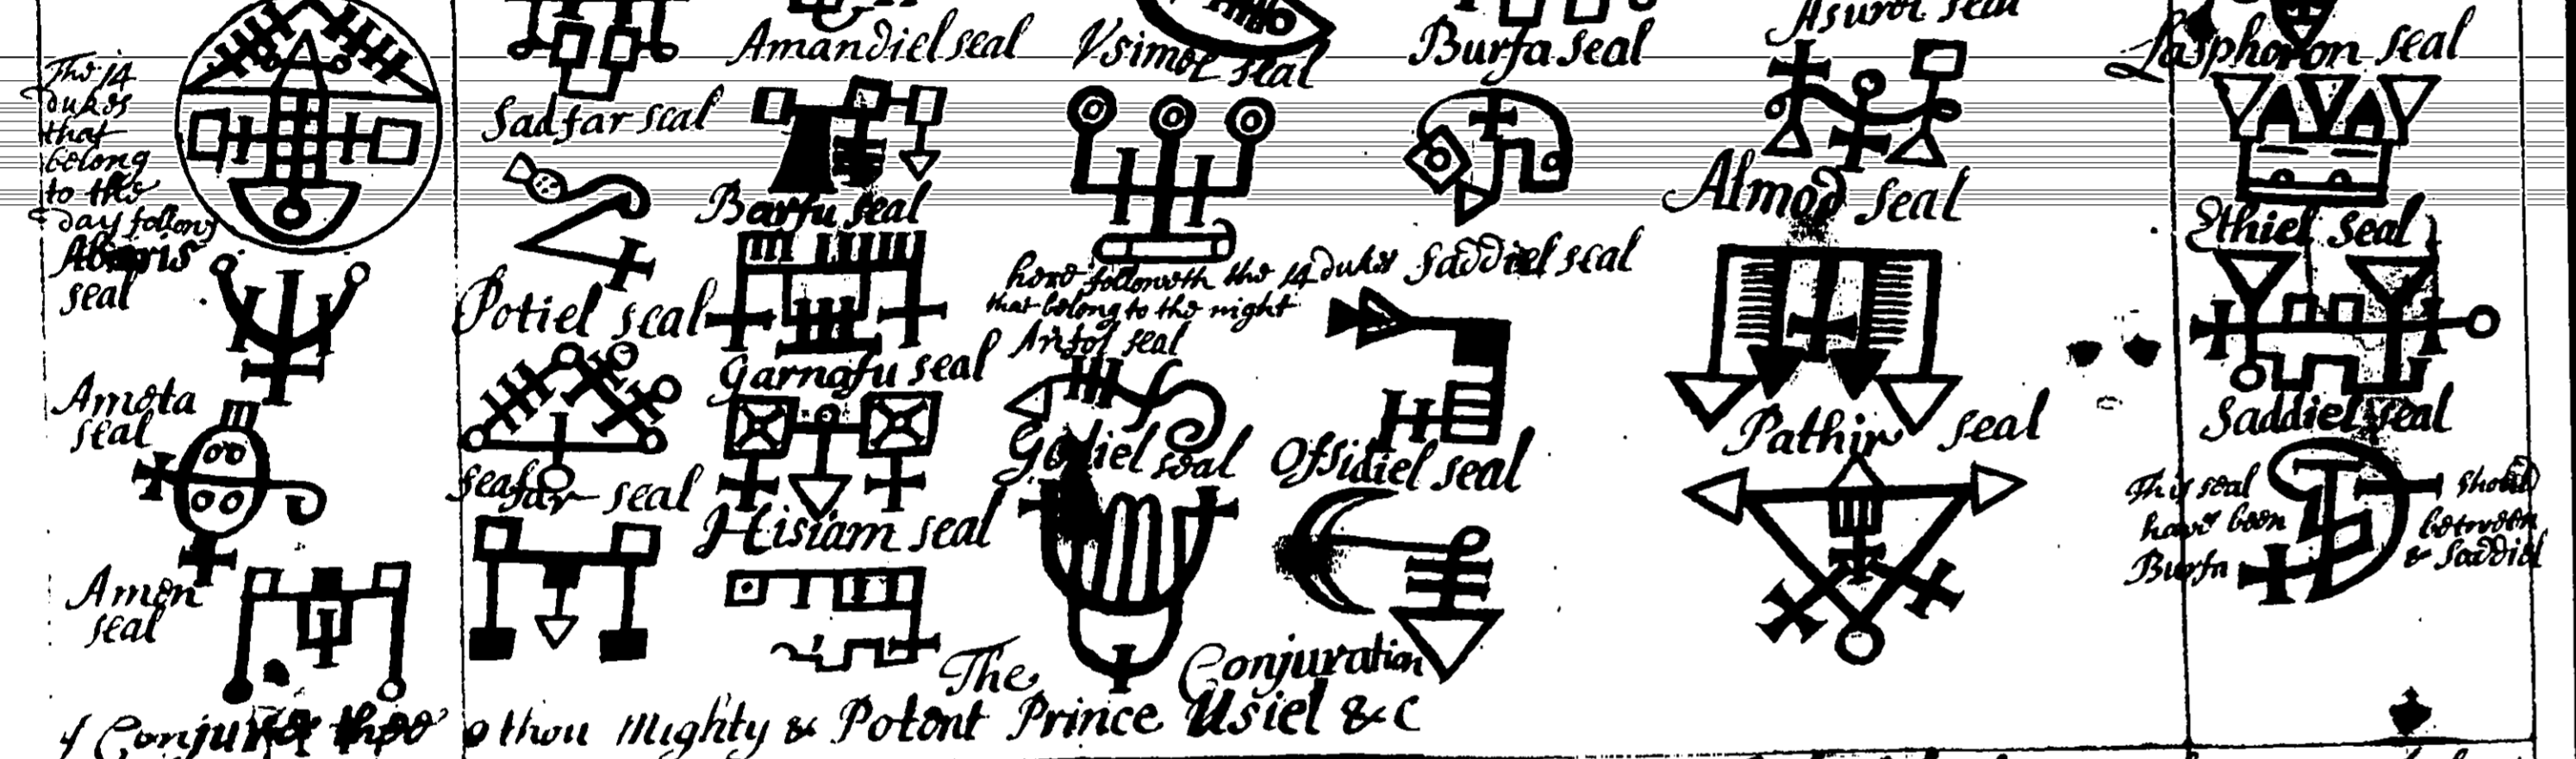 The 14
dukes
that
belong
to the
day follow
Abaris
seal
Ameta
seal
Amen
seal
Sadfar seal
Potiel seal
seafar seal
Amandiel seal
Barfu seal
Garnafu seal
Hisiam seal
Vsimel seal
here followeth the 14 dukes
that belong to the night
Ansol seal
Godiel seal
Burfa seal
Saddiel seal
Ossidiel seal
Asuroi seal
Almod seal
Pathir seal
Lasphoron seal
Ethiel seal
Saddiel seal
This seal should
have been between
Burfa & Saddiel
The Conjuration
I Conjure thee o thou Mighty & Potent Prince Usiel &c